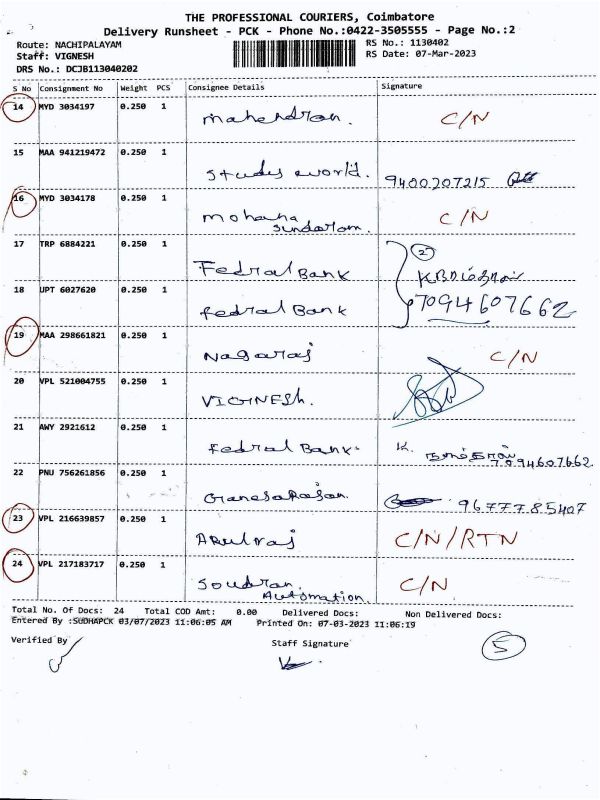 THE PROFESSIONAL COURIERS, Coimbatore
Delivery Runsheet - PCK - Phone No.:0422-3505555 - Page No.:2
Route: NACHIPALAYAM
Staff: VIGNESH
DRS No.: DCJB113040202
RS No.: 1130402
RS Date: 07-Mar-2023
S No Consignment No Weight PCS Consignee Details Signature
14 MYD 3034197 0.250 1 Mahendran. C/N
15 MAA 941219472 0.250 1 Studys world. 9400707215
16 MYD 3034178 0.250 1 Mohana Sundaram. C/N
17 TRP 6884221 0.250 1 Fedral Bank 2
18 UPT 6027620 0.250 1 Fedral Bank 7094607662
19 MAA 298661821 0.250 1 Nagaraj C/N
20 VPL 521004755 0.250 1 VIGNESh.
21 AWY 2921612 0.250 1 Fedral Bank. K. 7094607662
22 PNU 756261856 0.250 1 Ganesarasan 9677785407
23 VPL 216639857 0.250 1 ARulraj C/N/RTN
24 VPL 217183717 0.250 1 Automation C/N
Total No. Of Docs: 24 Total COD Amt: 0.00 Delivered Docs: Non Delivered Docs:
Entered By :SUDHAPCK 03/07/2023 11:06:05 AM Printed On: 07-03-2023 11:06:19
Verified By Staff Signature 5